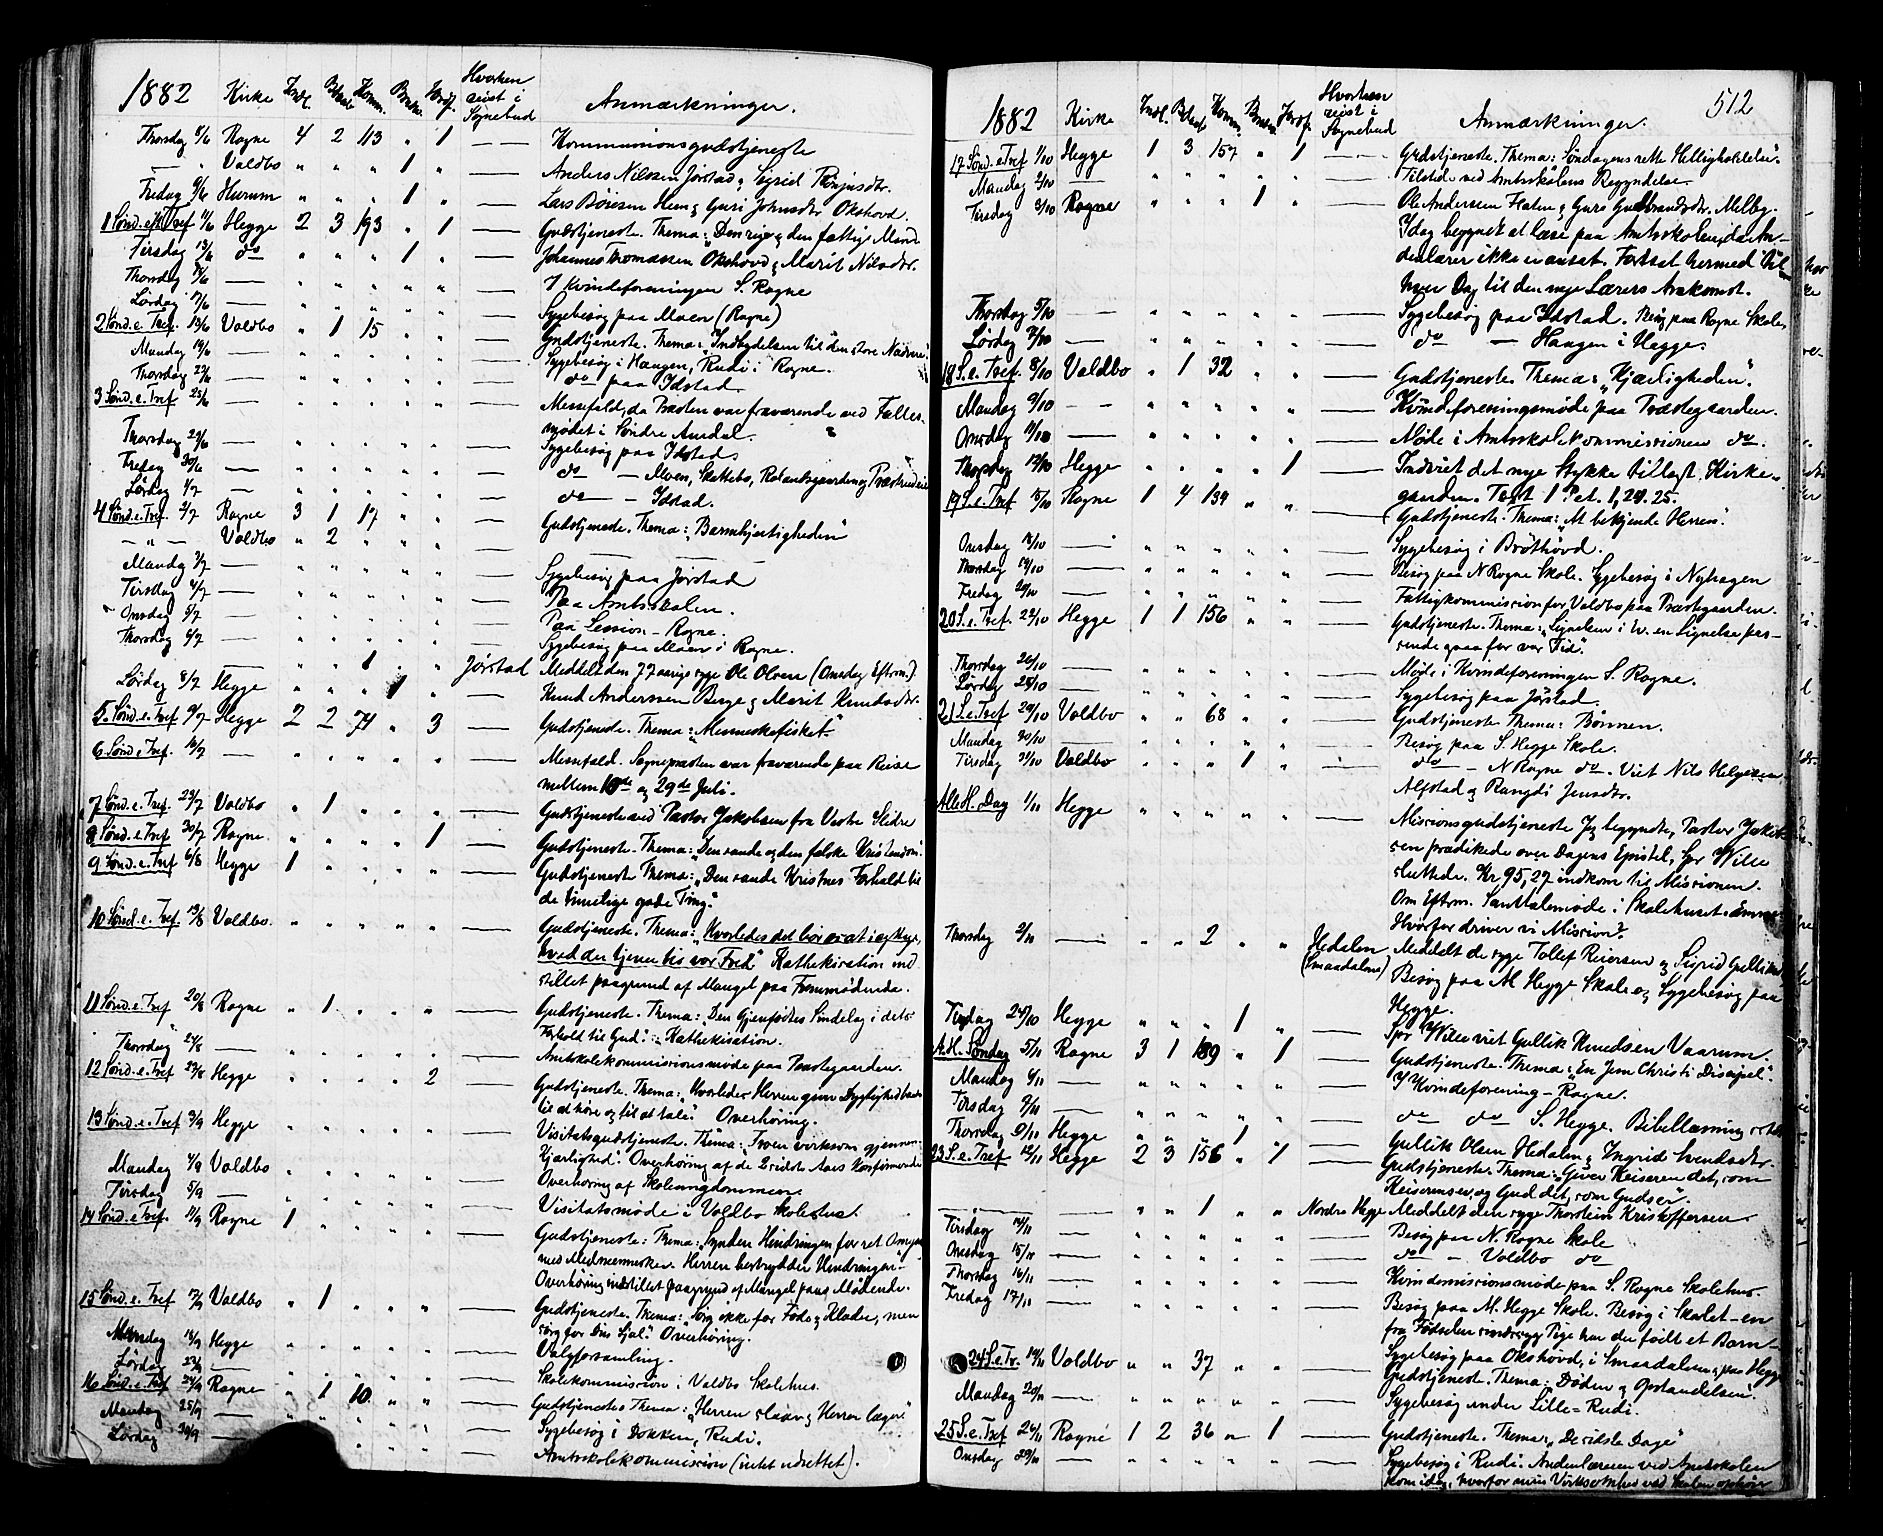 1882 Kirke Indl. Hvorhen reist i Sognebud Anmærkninger.
Thorsdag 8/6 Rogne 4 2 113 " 1 — Kommunionsgudstjeneste
— " Voldbo " " " 1 " — Anders Nilssen Jørstad & Sigrid
Fredag 9/6 Hurum " " " 1 " — Lars Heen & Guri Johnsdtr. Okshovd.
1 Sønd. e. Tref 11/6 Hegge 2 3 193 " 1 — Gudstjeneste. Thema: „Den rige & den fattige Mand
Tirsdag 13/6 do " " " 1 " — Johannes Thomassen Okshovd & Marit Nilsdtr.
Thorsdag — I Kvindeforeningen S. Rogne
Lørdag 17/6 — Sygebesøg paa Moen (Rogne)
2 Sønd. e. Tref. 18/6 Voldbo " 1 15 " " — Gudstjeneste. Thema: Indbydelsen til den store Nadvere
Mandag 19/6 — Sygebesøg i Haugen, Rudi i Rogne.
Thorsdag 22/6 — do paa Idstad
3 Sønd. e. Tref 25/6 — Messefald, da Præsten var fraværende ved Fælles-
mødet i Søndre Aurdal.
Thorsdag 29/6 — Sygebesøg paa Idstad
Fredag 30/6 — do — Moen, Skattebo, Rolandsgaarden og
Lørdag 1/7 — do — Idstad.
4 Sønd. e. Tref 2/7 Rogne 3 1 17 " " — Gudstjeneste. Thema: „Barmhjertigheden"
— " — Voldbo " 2 " " " —
Mandag 3/7 — Sygebesøg paa Jørstad
Tirsdag 4/7 — Paa Amtsskolen.
Onsdag 5/7 — Paa Session — Rogne.
Thorsdag 6/7 — Sygebesøg paa Moen i Rogne.
— " " 1 " " Jørstad Meddelt den 77 aarige syge Ole Olsen (Onsdag Efterm.)
Lørdag 8/7 Hegge " " " 1 " — Knud Anderssen Berge & Marit Knudsdtr.
5. Sønd. e. Tref 9/7 Hegge 2 2 74 " 3 — Gudstjeneste. Thema: „Menneskefisket"
6 Sønd. e. Tref. 16/7 — Messefald. Sognepræsten var fraværende paa Reise
mellem 10de og 29de Juli.
7 Sønd. e. Tref 23/7 Voldbo " 1 " " " — Gudstjeneste ved Pastor Jakobsen fra Vestre Slidre
8 Sønd. e. Tref 30/7 Rogne. " " " " 1 — Gudstjeneste. Thema: „Den sande og den falske Kristendom"
9 Sønd. e. Tref 6/8 Hegge 1 " " " " — Gudstjeneste Thema: „Den sande Kristnes Forhold til
de timelige gode Ting."
10 Sønd. e. Tref. 13/8 Voldbo. " " " " " — Gudstjeneste. Thema: „Hvorledes det bør
hvad der tjener til vor Fred" Kathekisation ind-
stillet paagrund af Mangel paa Fremmødende.
11 Sønd. e. Tref 20/8 Rogne " 1 " " " — Gudstjeneste. Thema: „Den Gjenfødtes Sindelag i dets
Forhold til Gud." Kathekisation.
Thorsdag 24/8 — Amtsskolekommissionsmøde paa Præstegaarden.
12 Sønd. e. Tref 27/8 Hegge " " " " 2 — Gudstjeneste. Thema: „Hvorledes Herren giver Dygtighed baade
til at høre og til at tale". Overhøring.
13 Sønd. e. Tref 3/9 Hegge — Visitatsgudstjeneste. Thema: „Troen virksom gjennem
Kjærlighed". Overhøring af de 2 sidste Aars Konfirmerede
Mandag 4/9 Voldbo — Overhøring af Skoleungdommen
Tirsdag 5/9 — Visitatsmøde i Voldbo Skolehus.
14 Sønd. e. Tref. 10/9 Rogne 1 " " " " — Gudstjeneste: Thema: „Synden Hindringen for ret Omgang
med Medmennesker. Herren Hindringen.
Overhøring indstillet paagrund af Mangel paa Mødende.
15 Sønd. e. Tref 17/9 Voldbo " 1 " " " — Gudstjeneste. Thema: „Sørg ikke for Føde & Klæder, men
sørg for Din Sjæl". Overhøring.
Mandag 18/9 Hegge — Valgforsamling.
Lørdag 23/9 — Skolekommission i Voldbo Skolehus.
16 Sønd. e. Tref 24/9 Rogne " 1 10 " " — Gudstjeneste Thema: „Herren slaar & Herren læger."
Mandag 25/9 — Sygebesøg i Dokken, Rudi.
Lørdag 30/9 — Amtsskolekommission (intet udrettet).
512
1882 Kirke Indl. Hvorhen reist i Sognebud Anmærkninger.
17 Sønd. e Tref 1/10 Hegge 1 3 157 " 1 — Gudstjeneste. Thema: Søndagens rette Helligholdelse".
Mandag 2/10 — Tilstede ved Amtsskolens Begyndelse.
Tirsdag 3/10 Rogne " " " 1 " — Ole Anderssen & Guro Gudbrandsdtr. Melby.
Idag begyndt at læse paa Amtsskolen, da An-
denlærer ikke er ansat. Fortsat hermed
hver Dag til den nye Lærers Ankomst.
Thorsdag 5/10 — Sygebesøg paa Idstad. Besøg paa Rogne Skole
Lørdag 7/10 — do — Haugen i Hegge.
18 S. e. Tref. 8/10 Voldbo " 1 32 " " — Gudstjeneste Thema: „Kjærligheden".
Mandag 9/10 — Kvindeforeningsmøde paa Præstegaarden.
Onsdag 11/10 — Møde i Amtsskolekommissionen do.
Thorsdag 12/10 Hegge " " " " 1 — Indviet det nye Stykke tillagt Kirke-
gaarden. Text 1 Pet. 1, 24. 25.
19 S. e. Tref 15/10 Rogne 1 4 139 " " — Gudstjeneste. Thema: „At bekjende Herren".
Onsdag 18/10 — Sygebesøg i Brøthovd.
Thorsdag 19/10 — Besøg paa N Rogne Skole. Sygebesøg i Nyhagen
Fredag 20/10 — Fattigkommission for Voldbo paa Præstegaarden.
20 S. e. Tref. 22/10 Hegge 1 1 156 " " — Gudstjeneste. Thema: „Lignelsen i Ev. en Lignelse pas-
sende paa for vor Tid".
Thorsdag 26/10 — Møde i Kvindeforeningen S. Rogne.
Lørdag 28/10 — Sygebesøg paa Jørstad.
21 S. e. Tref 29/10 Voldbo " " 68 " " — Gudstjeneste Thema: Bønnen.
Mandag 30/10 — Besøg paa S. Hegge Skole.
Tirsdag 31/10 Voldbo " " " 1 " — do — N Rogne do. Viet Nils Helgesen
Alfstad & Rangdi Jensdtr.
Alle H. Dag 1/11 Hegge " " " " " — Missionsgudstjeneste Jeg begyndte, Pastor Jakob-
sen prædikede over Dagens Epistel, Spr Wille
sluttede. Kr 95,27 indkom til Missionen.
Om Efterm. Santhalmøde i Skolehuset. Emne
Hvorfor driver vi Mission?
Thorsdag 2/11 — " " 2 " " Hedalen (Smaadalene) Meddelt de syge Tollef Reiersen & Sigrid
Besøg paa M Hegge Skole & Sygebesøg paa
Hegge.
Tirsdag 24/10 Hegge " " " 1 " — Spr Wille viet Gullik Knudsen Vaarum.
A. H. Søndag 5/11 Rogne 3 1 189 " 1 — Gudstjeneste. Thema: „En Jesu Christi Discipel".
Mandag 6/11 — I Kvindeforening — Rogne.
Tirsdag 7/11 — do do S. Hegge. Bibellæsning
Thorsdag 9/11 Hegge " " " 1 " Gullik Olsen Hedalen & Ingrid Svendsdtr.
23 S. e. Tref 12/11 Hegge 2 3 156 " 1 — Gudstjeneste. Thema: „Giver Keiseren det, som
Keiserens er, og Gud det, som Guds er".
— " " 1 " " Nordre Hegge Meddelt den syge Thorstein Kristoffersen
Tirsdag 14/11 — Besøg paa N. Rogne Skole
Onsdag 15/11 — do — Voldbo do
Thorsdag 16/11 — Kvindemissionsmøde paa S. Rogne Skolehus.
Fredag 17/11 — Besøg paa M. Hegge Skole. Besøg i Skolet — en
fra Fødselen sindssyg Pige har der født et Barn —
Sygebesøg paa Okshovd, i Smaadalene, paa Hegge
24 S. e. Tr. 19/11 Voldbo " " 37 " " Gudstjeneste. Thema: Døden & Opstandelsen.
Mandag 20/11 — Sygebesøg under Lille-Rudi.
25 S. e. Tref 26/11 Rogne 1 2 36 " 1 — Gudstjeneste. Thema: „De sidste Dage"
Onsdag 29/11 — Sygebesøg i Rudi. Andenlæreren ved Amtsskolen
kom idag, hvorfor min Virksomhed ved Skolen ophører